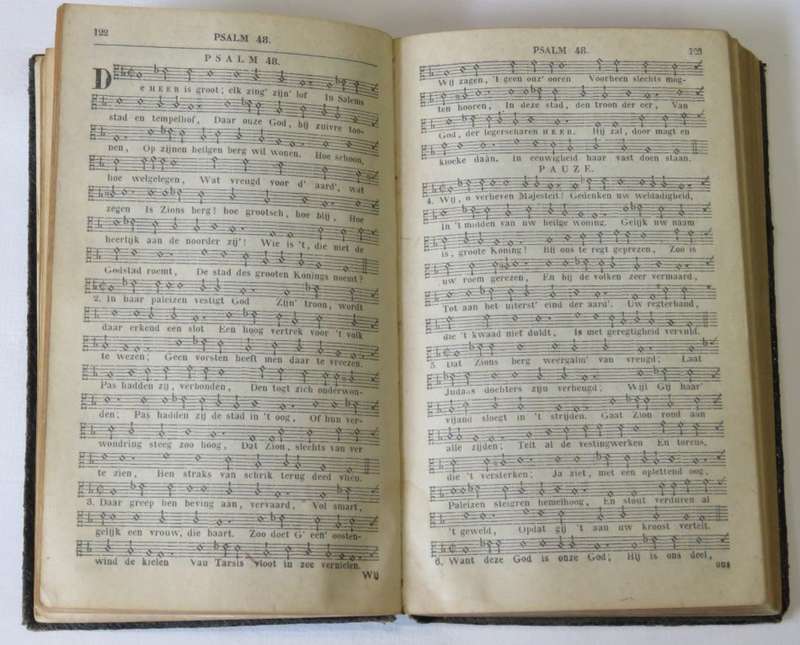 122
PSALM 48.
PSALM 48.
De HEER is groot; elk zing' zijn' lof In Salems
stad en tempelhof, Daar onze God, bij zuivre too-
nen, Op zijnen heilgen berg wil wonen. Hoe schoon,
hoe welgelegen, Wat vreugd voor d' aard', wat
zegen Is Zions berg! hoe grootsch, hoe blij, Hoe
heerlijk aan de noorder zij'! Wie is 't, die met de
Godstad roemt, De stad des grooten Konings noemt?
2. In haar paleizen vestigt God Zijn' troon, wordt
daar erkend een slot Een hoog vertrek voor 't volk
te wezen; Geen vorsten heeft men daar te vreezen.
Pas hadden zij, verbonden, Den togt zich onderwon-
den; Pas hadden zij de stad in 't oog, Of hun ver-
wondring steeg zoo hoog, Dat Zion, slechts van ver
te zien, Hen straks van schrik terug deed vliên.
3. Daar greep hen beving aan, vervaard, Vol smart,
gelijk een vrouw, die baart. Zoo doet G' een' oosten-
wind de kielen Van Tarsis vloot in zee vernielen.
Wij
PSALM 48.
123
Wij zagen, 't geen onz' ooren Voorheen slechts mog-
ten hooren, In deze stad, den troon der eer, Van
God, der legerscharen HEER. Hij zal, door magt en
kloeke daân, In eeuwigheid haar vast doen staan.
PAUZE.
4. Wij, o verheven Majesteit! Gedenken uw weldadigheid,
In 't midden van uw heilge woning. Gelijk uw naam
is, groote Koning! Bij ons te regt geprezen, Zoo is
uw roem gerezen, En bij de volken zeer vermaard,
Tot aan het uiterst' eind der aard'. Uw regterhand,
die 't kwaad niet duldt, Is met geregtigheid vervuld.
5. Dat Zions berg weergalm' van vreugd; Laat
Juda's dochters zijn verheugd; Wijl Gij haar'
vijand sloegt in 't strijden. Gaat Zion rond aan
alle zijden; Telt al de vestingwerken En torens,
die 't versterken; Ja ziet, met een oplettend oog,
Paleizen steigren hemelhoog, En stout verduren al
't geweld, Opdat gij 't aan uw kroost vertelt.
6. Want deze God is onze God; Hij is ons deel,
ons